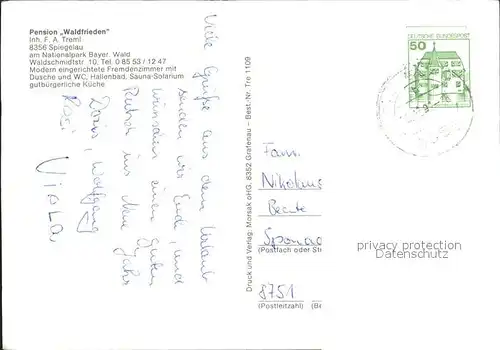 Pension „Waldfrieden"
Inh. F. A. Troml
8356 Spiegelau
am Nationalpark Bayer. Wald
Waldschmidtstr. 10, Tel. 0 85 53 / 12 47
Modern eingerichtete Fremdenzimmer mit
Dusche und WC, Hallenbad, Sauna-Solarium
gutbürgerliche Küche
Viele Grüße aus dem Urlaub
senden wir Euch, und
wünschen einen guten
Rutsch ins Neue Jahr
Doris, Wolfgang
Rosi
Druck und Verlag: Morsak oHG, 8352 Grafenau – Best. Nr. Tre 1109
DEUTSCHE BUNDESPOST
50
Fam.
Nikolaus
Beate
(Postfach oder St
8751
(Postleitzahl) (Be
privacy protection
Datenschutz